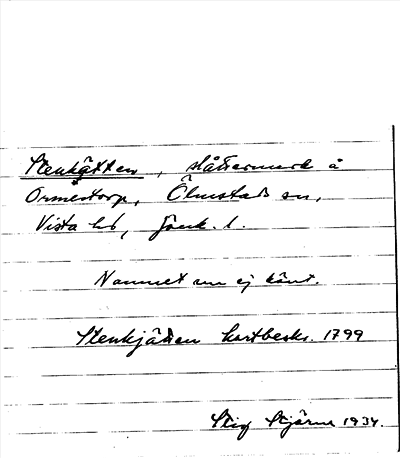 Stenkätten, slåttermark å
Ormestorp, Ölmstads sn,
Vista hd, Jönk. l.
Namnet nu ej känt.
Stenkjätten kartbeskr. 1799
Stig Stjärna 1934.